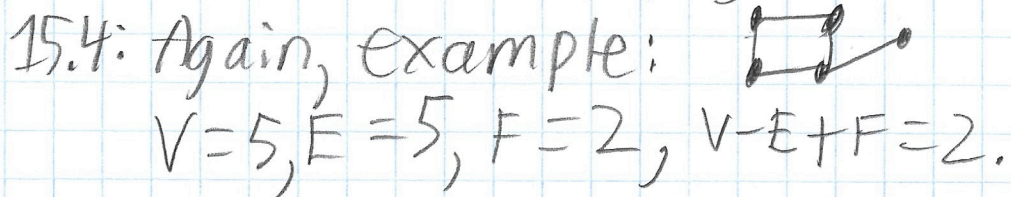 15.4: Again, example:
V=5, E=5, F=2, V-E+F=2.